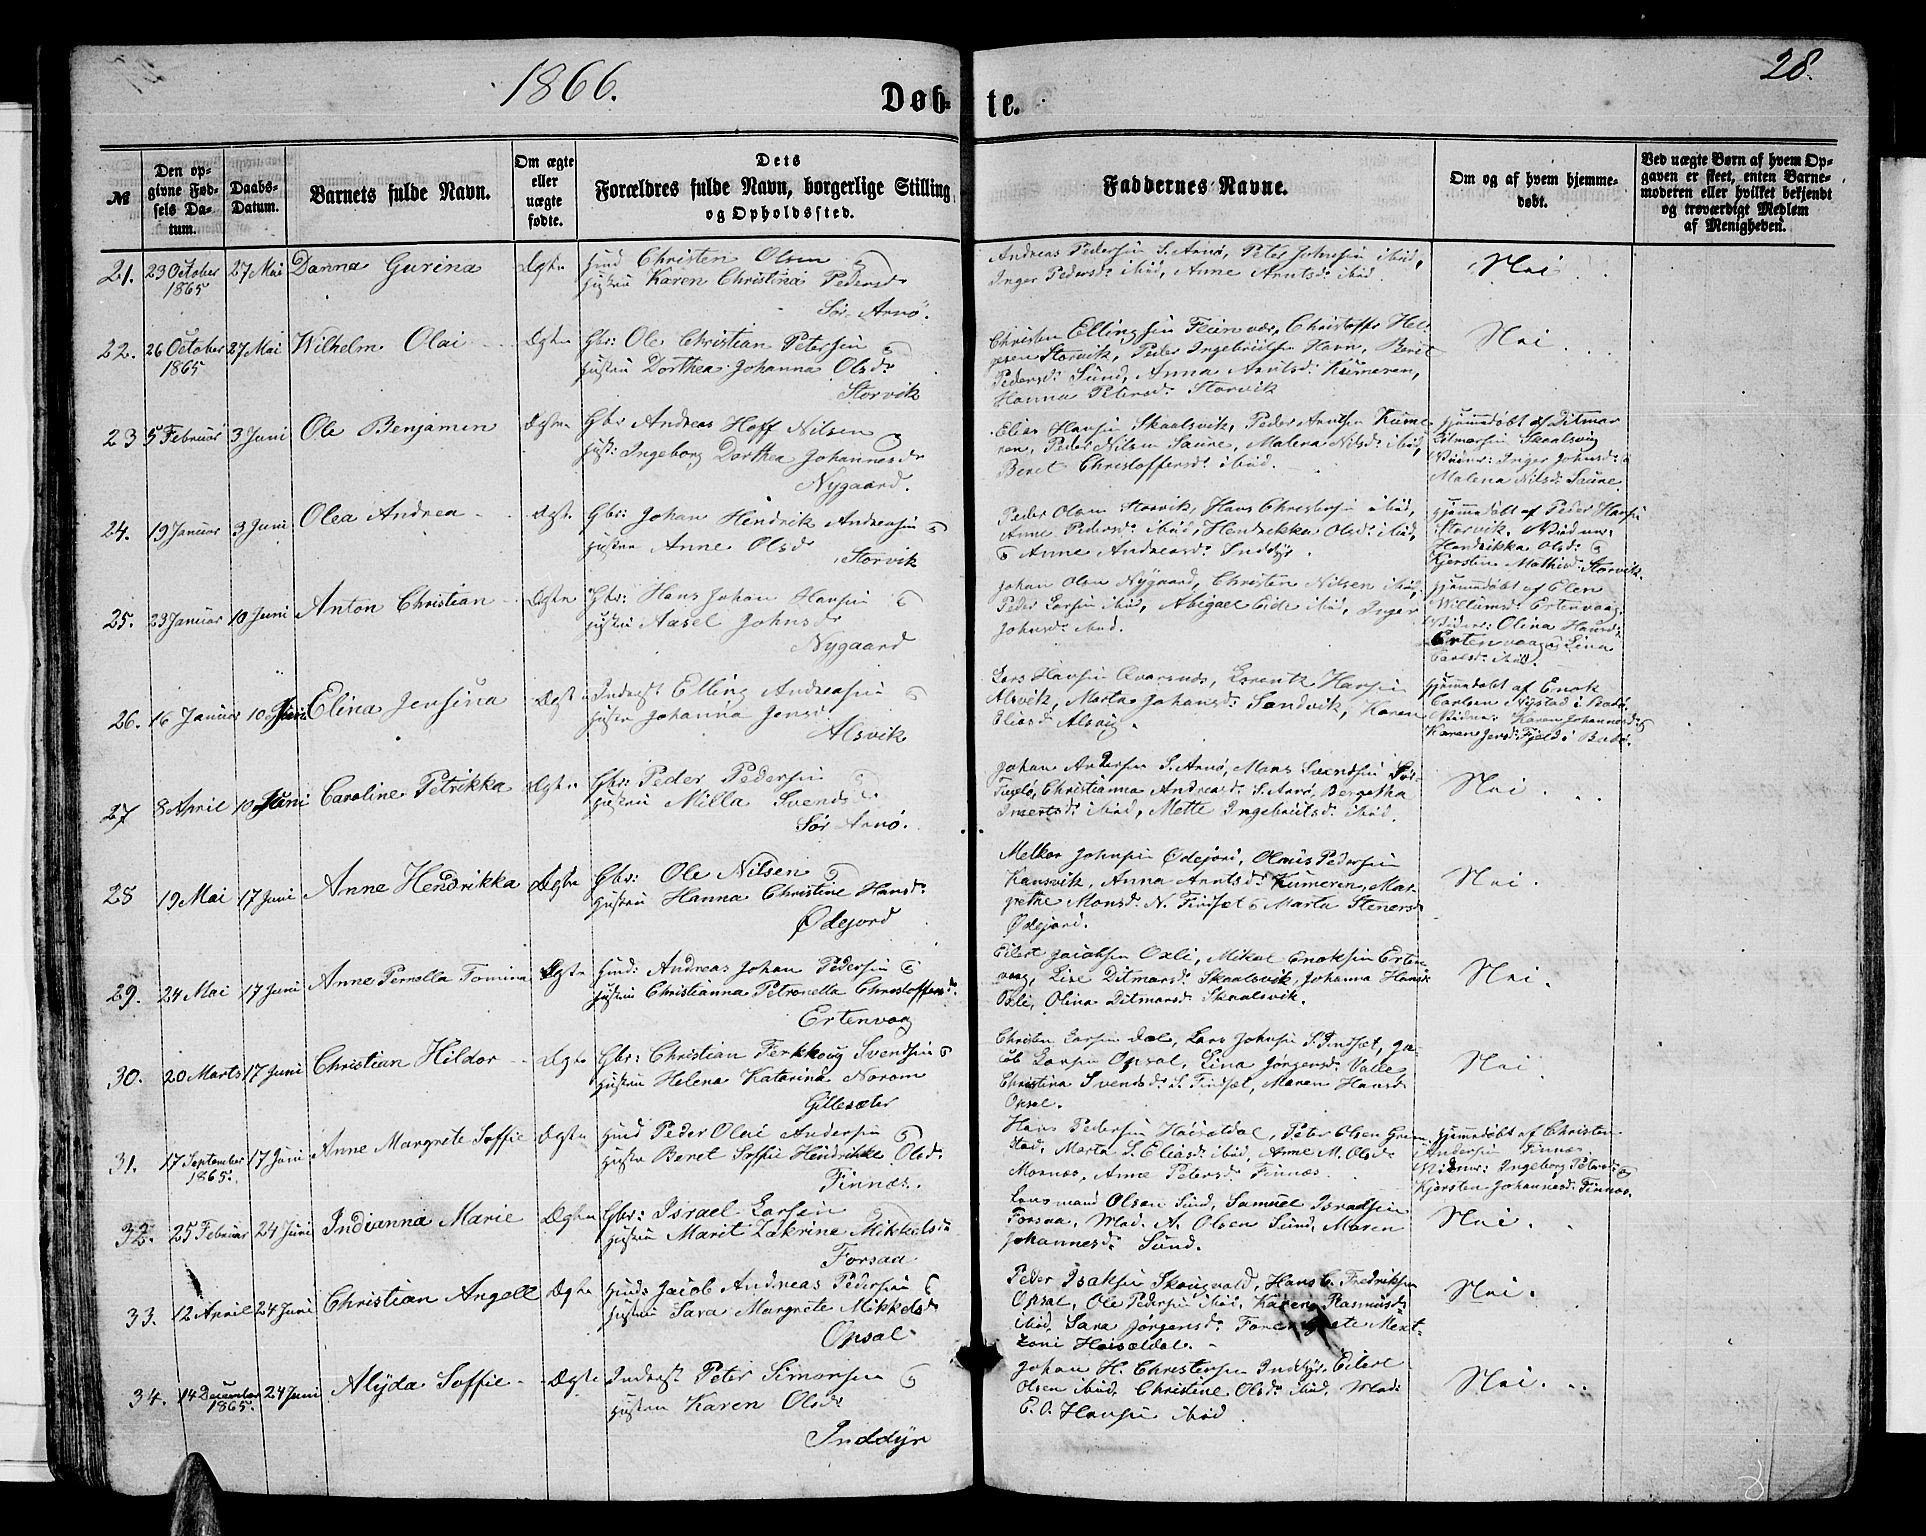 1866.
28.
Døb- te.
№
Den opgivne Fødsels Datum.
Daabs-Datum.
Barnets fulde Navn.
Om ægte eller uægte fødte.
Dets Forældres fulde Navn, borgerlige Stilling, og Opholdssted.
Faddernes Navne.
Om og af hvem hjemmedøbt.
Ved uægte Børn af hvem Opgaven er skeet, enten Barnemoderen eller hvilket bekjendt og troværdigt Medlem af Menigheden.
21. 23 October 27 Mai Danna Gurina Ægte Huusd Christen Olsen
1865 Hustru Karen Christina Pedersd:
Sør Arnø.
Andreas Pedersen S. Arnø, Peter Johnsen ibid,
Inger Pedersd: ibid, Anne Arntsd: ibid.
Nei
22. 26 October 27 Mai Wilhelm Olai Ægte Gbr: Ole Christian Petersen &
1865 Hustru Dorthea Johanna Olsd:
Storvik
Christen Ellingsen Feienvær, Christoffer
Storvik, Peder Ingebrigtsen Havn, Beret
Pedersd: Sund, Anna Arntsd: Kumeren,
Hanna Petersd: Storvik
Nei
23 5 Februar 3 Juni Ole Benjamin Ægte Gbr Andreas Hoff Nilsen &
Hustr: Ingeborg Dorthea Johannesd:
Nygaard.
Elias Hansen Skaalsvik, Peder Arntsen Kume-
ren, Peder Nilsen Saure, Malena Nilsd: ibid,
Beret Christoffersd: ibid.
Hjemmedøbt af Ditmar
Ditmarsen Skaalsvig
Vidner: Inger Johnsd: &
Malena Nilsd: Saure
24. 19 Januar 3 Juni Olea Andrea Ægte Gbr: Johan Hendrik Andreasen &
Hustru Anne Olsd:
Storvik
Peder Olsen Storvik, Hans Christensen ibid,
Anne Pedersd: ibid, Hendrikka Olsd: ibid,
& Anne Andreasd: Inddyr.
Hjemmedøbt af Peder Hansen
Storvik. Vidner:
Hendrikka Olsd: &
Kjersten Mathisd: Storvik.
25. 23 Januar 10 Juni Anton Christian Ægte Gbr: Hans Johan Hansen &
Hustru Aasel Johnsd:
Nygaard
Johan Olsen Nygaard, Christen Nilsen ibid,
Peder Larsen ibid, Abigael Eide ibid, Inger
Johnsd: ibid.
Hjemmedøbt af Elen
Willumsd: Ertenvaag
Vidner: Olina Hansd:
Ertenvaag & Lina
Carlsd: ibid.
26. 16 Januar 10 Juni Elina Jensina Ægte Inderst Elling Andreasen &
Hustru Johanna Jensd:
Alsvik
Lars Hansen Qvarsnes, Lorentz Hansen
Alsvik, Marta Johansd: Sandvik, Karen
Eliasd: Alsvig.
Hjemmedøbt af Enok
Carlsen Nystad i Bodø.
Vidner: Karen Johannesd: &
Karen Jensd: Fjeld i Bodø.
27 8 April 10 Juni Caroline Petrikka Ægte Gbr: Peder Pedersen
Hustru Milla Svendsd:
Sør Arnø.
Johan Andersen S. Arnø, Mons Svendsen Sør-
Fugelø, Christianna Andreasd: S. Arnø, Bergetha
ibid, Mette Ingebrigtsd: ibid.
Nei
28 19 Mai 17 Juni Anne Hendrikka Ægte Gbr: Ole Nilsen &
Hustru Hanna Christine Hansd:
Ødejord
Melkor Johnsen Ødejord, Olaus Pedersen
Kansvik, Anna Arntsd: Kumeren, Mar-
grethe Monsd: N. Findset & Marta Stenersd:
Ødejord.
Nei.
29. 24 Mai 17 Juni Anne Pernella Tomina Ægte Huusd: Andreas Johan Pedersen &
Hustru Christianna Petronella Christoffersd:
Ertenvaag
Eilert Jacobsen Oxli, Mikal Enoksen Erten-
vaag, Lise Ditmarsd: Skaalsvik, Johanna Hansd:
Oxli, Olina Ditmarsd: Skaalsvik.
Nei.
30. 20 Marts 17 Juni Christian Hildor Ægte Gbr: Christian Ferkkoug Svendsen &
Hustru Helena Katarina Norom
Gillesæter
Christen Larsen Dal, Lars Johnsen S. Findset, Ja-
cob Larsen Opsal, Lina Jørgensd: Valle,
Christina Svendsd: S. Findset, Maren Hansd:
Opsal.
Nei
31. 17 September 17 Juni Anne Margrete Soffie Ægte Huusd Peder Olai Andersen &
1865. Hustru Beret Soffie Hendrikke Olsd:
Finnæs.
Hans Pedersen Høisetdal, Peter Olsen Grim-
stad, Marta S. Eliasd: ibid, Anne M. Olsd:
Mornæs, Anne Petersd: Finnæs.
Hjemmedøbt af Christen
Andersen Finnæs
Vidner: Ingeborg Petersd: &
Kjersten Johannesd: Finnæs.
32. 25 Februar 24 Juni Indianna Marie Ægte Gbr: Israel Larsen &
Hustru Marit Zakrine Mikkelsd:
Forsaa
Lensmand Olsen Sund, Samuel Israelsen
Forsaa, Mad. A. Olsen Sund, Maren
Johannesd: Sund.
Nei.
33. 12 April 24 Juni Christian Angell Ægte Huusd: Jacob Andreas Pedersen &
Hustru Sara Margrete Mikkelsd:
Opsal.
Peder Isaksen Skougvold, Hans C. Fredriksen
Opsal, Ole Pedersen ibid, Karen Rasmusd:
ibid, Sara Jørgensd: Fore, Ment-
zoni Høisetdal.
Nei.
34. 14 December 24 Juni Alyda Soffie Ægte Inderst Peter Simonsen &
1865. Hustru Karen Olsd:
Inddyr
Johan H. Christensen Inddyr, Eilert
Olsen ibid, Christine Olsd: ibid, Mad:
E. O. Hansen ibid.
Nei.